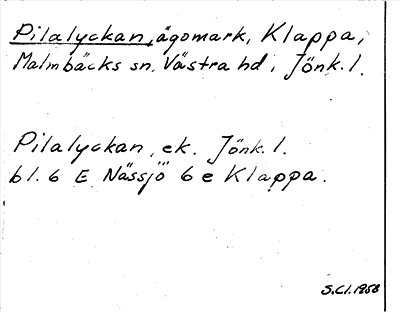 Pilalyckan, ägomark, Klappa,
Malmbäcks sn. Västra hd, Jönk. l.
Pilalyckan, ek. Jönk. l.
bl. 6 E Nässjö 6 e Klappa.
S.Cl. 1958